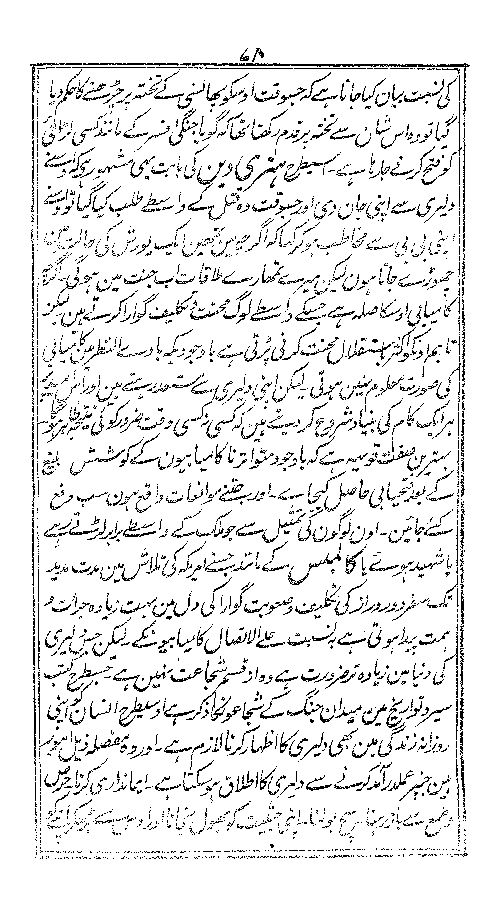 کی نسبت بیان کیا جاتا ہے کہ جسوقت اوسکو پھانسی کے تختہ پر چڑھنے کا حکم دیا
گیا تو وہ اس شان سے تختہ پر قدم رکھتا تھا کہ گویا جنگی افسر کے مانند کسی لڑائی
کو فتح کرنے جا رہا ہے۔ اسیطرح ہنری وین کی بابت بھی مشہور ہے کہ اوسنے
دلیری سے اپنی جان دی اور جسوقت وہ قتل کے واسطے طلب کیا گیا تو اوسنے
اپنی بی بی سے مخاطب ہو کر کہا کہ اگرچہ مین تمھین ایک یورش کی حالت مین
چھوڑے جاتا ہون لیکن میرے تمھارے ملاقات اب جنت مین ہوگی۔
کامیابی اوسکا صلہ ہے جسکے واسطے لوگ محنت و تکلیف گوارا کرتے ہین لیکن
تاہم اونکو اکثر باستقلال محنت کرنی پڑتی ہے باوجودیکہ بادے النظر مین کامیابی
کی صورت معلوم نہین ہوتی لیکن اپنی دلیری سے مستعد رہتے ہین اور اس امید پر
ہر ایک کام کی بنیاد شروع کر دیتے ہین کہ کسی نہ کسی وقت ضرور کوئی نتیجہ ظاہر ہوگا
بہترین صفت تو یہ ہے کہ باوجود متواتر ناکامیابیون کے کوشش بلیغ
کے بعد فتحیابی حاصل کیجائے۔ اور جتنے موانعات واقع ہون سب دفع
کئے جائین۔ اون لوگون کی تمثیل سے جو ملک کے واسطے برابر لڑتے رہے
یا شہید ہوئے یا کالمبس کے مانند جسنے امریکہ کی تلاش مین مدت مدید
تک سفر دور و دراز کی تکلیف و صعوبت گوارا کی دل مین بہت زیادہ جرات و
ہمت پیدا ہوتی ہے بہ نسبت علے الاتصال کامیابیونکے لیکن جس دلیری
کی دنیا مین زیادہ تر ضرورت ہے وہ از قسم شجاعت نہین ہے جسطرح کتب
سیر و تواریخ مین میدان جنگ کے شجاعونکا ذکر ہے اوسیطرح انسان کو اپنی
روزانہ زندگی مین بھی دلیری کا اظہار کرنا لازم ہے۔ اور وہ مفصلہ ذیل امور
ہین جنپر عملدرآمد کرنے سے دلیری کا اطلاق ہو سکتا ہے۔ ایمانداری کرنا حرص
و طمع سے باز رہنا سچ بولنا۔ اپنی حیثیت کو بھول نجانا اور